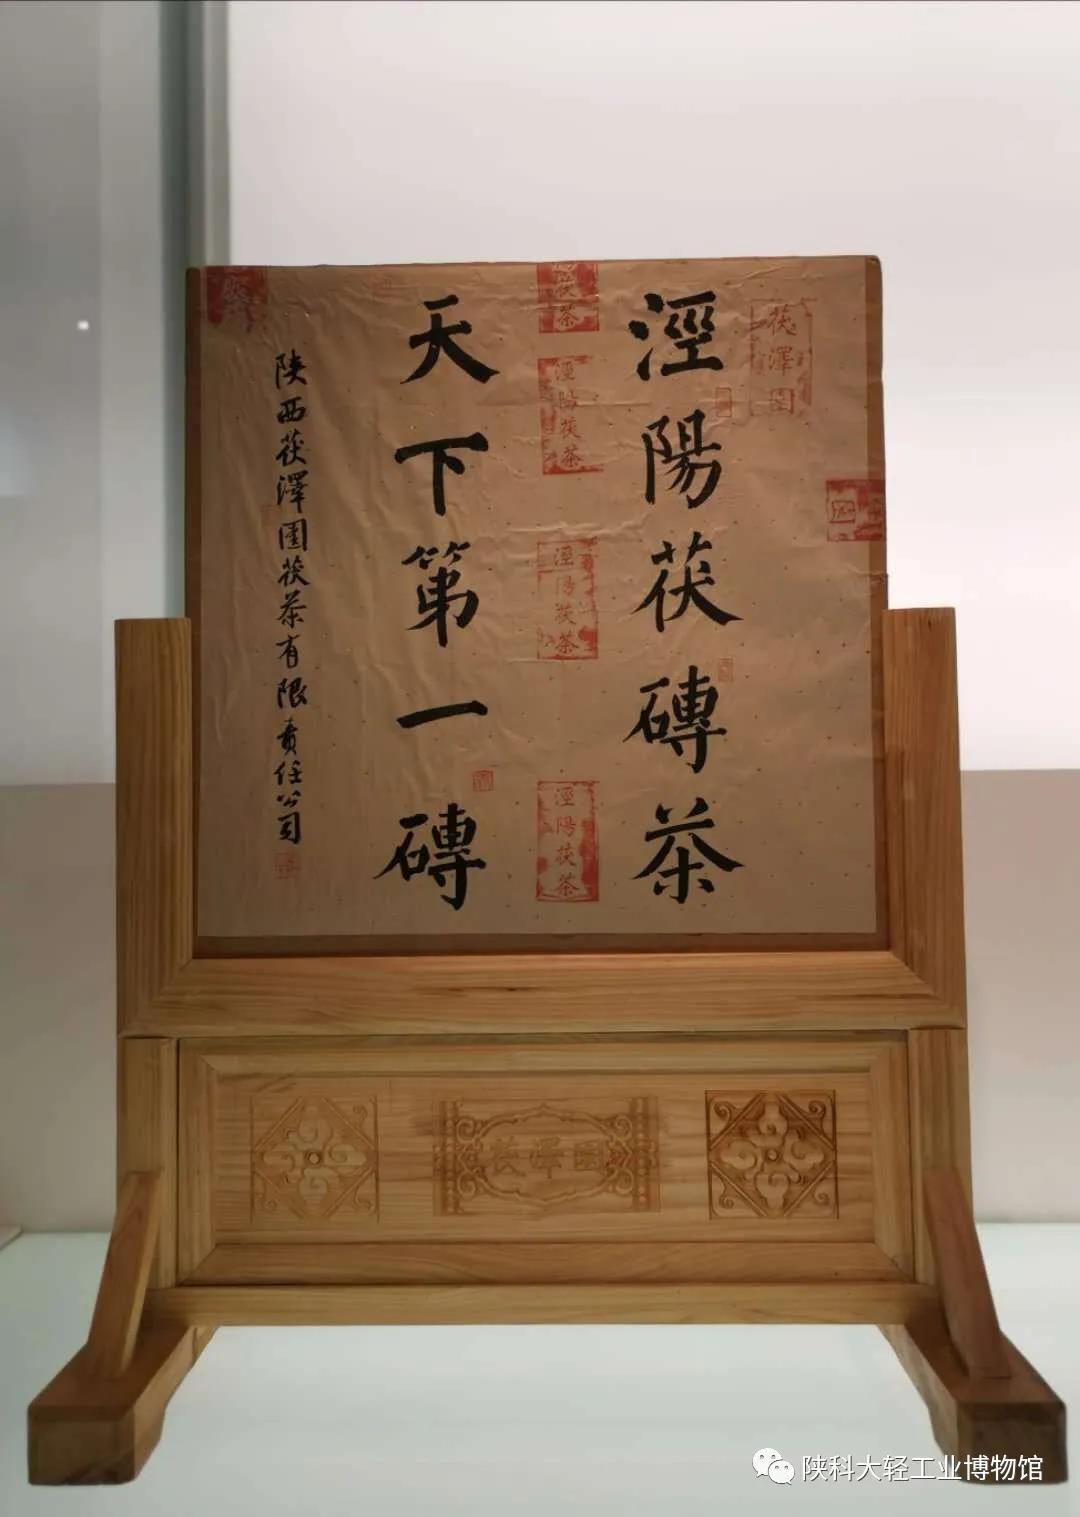 涇陽茯磚茶
天下第一磚
陕西茯澤園茯茶有限责任公司
茯澤園
茯茶
涇陽茯茶
涇陽茯茶
涇陽茯茶
茯澤園
陕科大轻工业博物馆